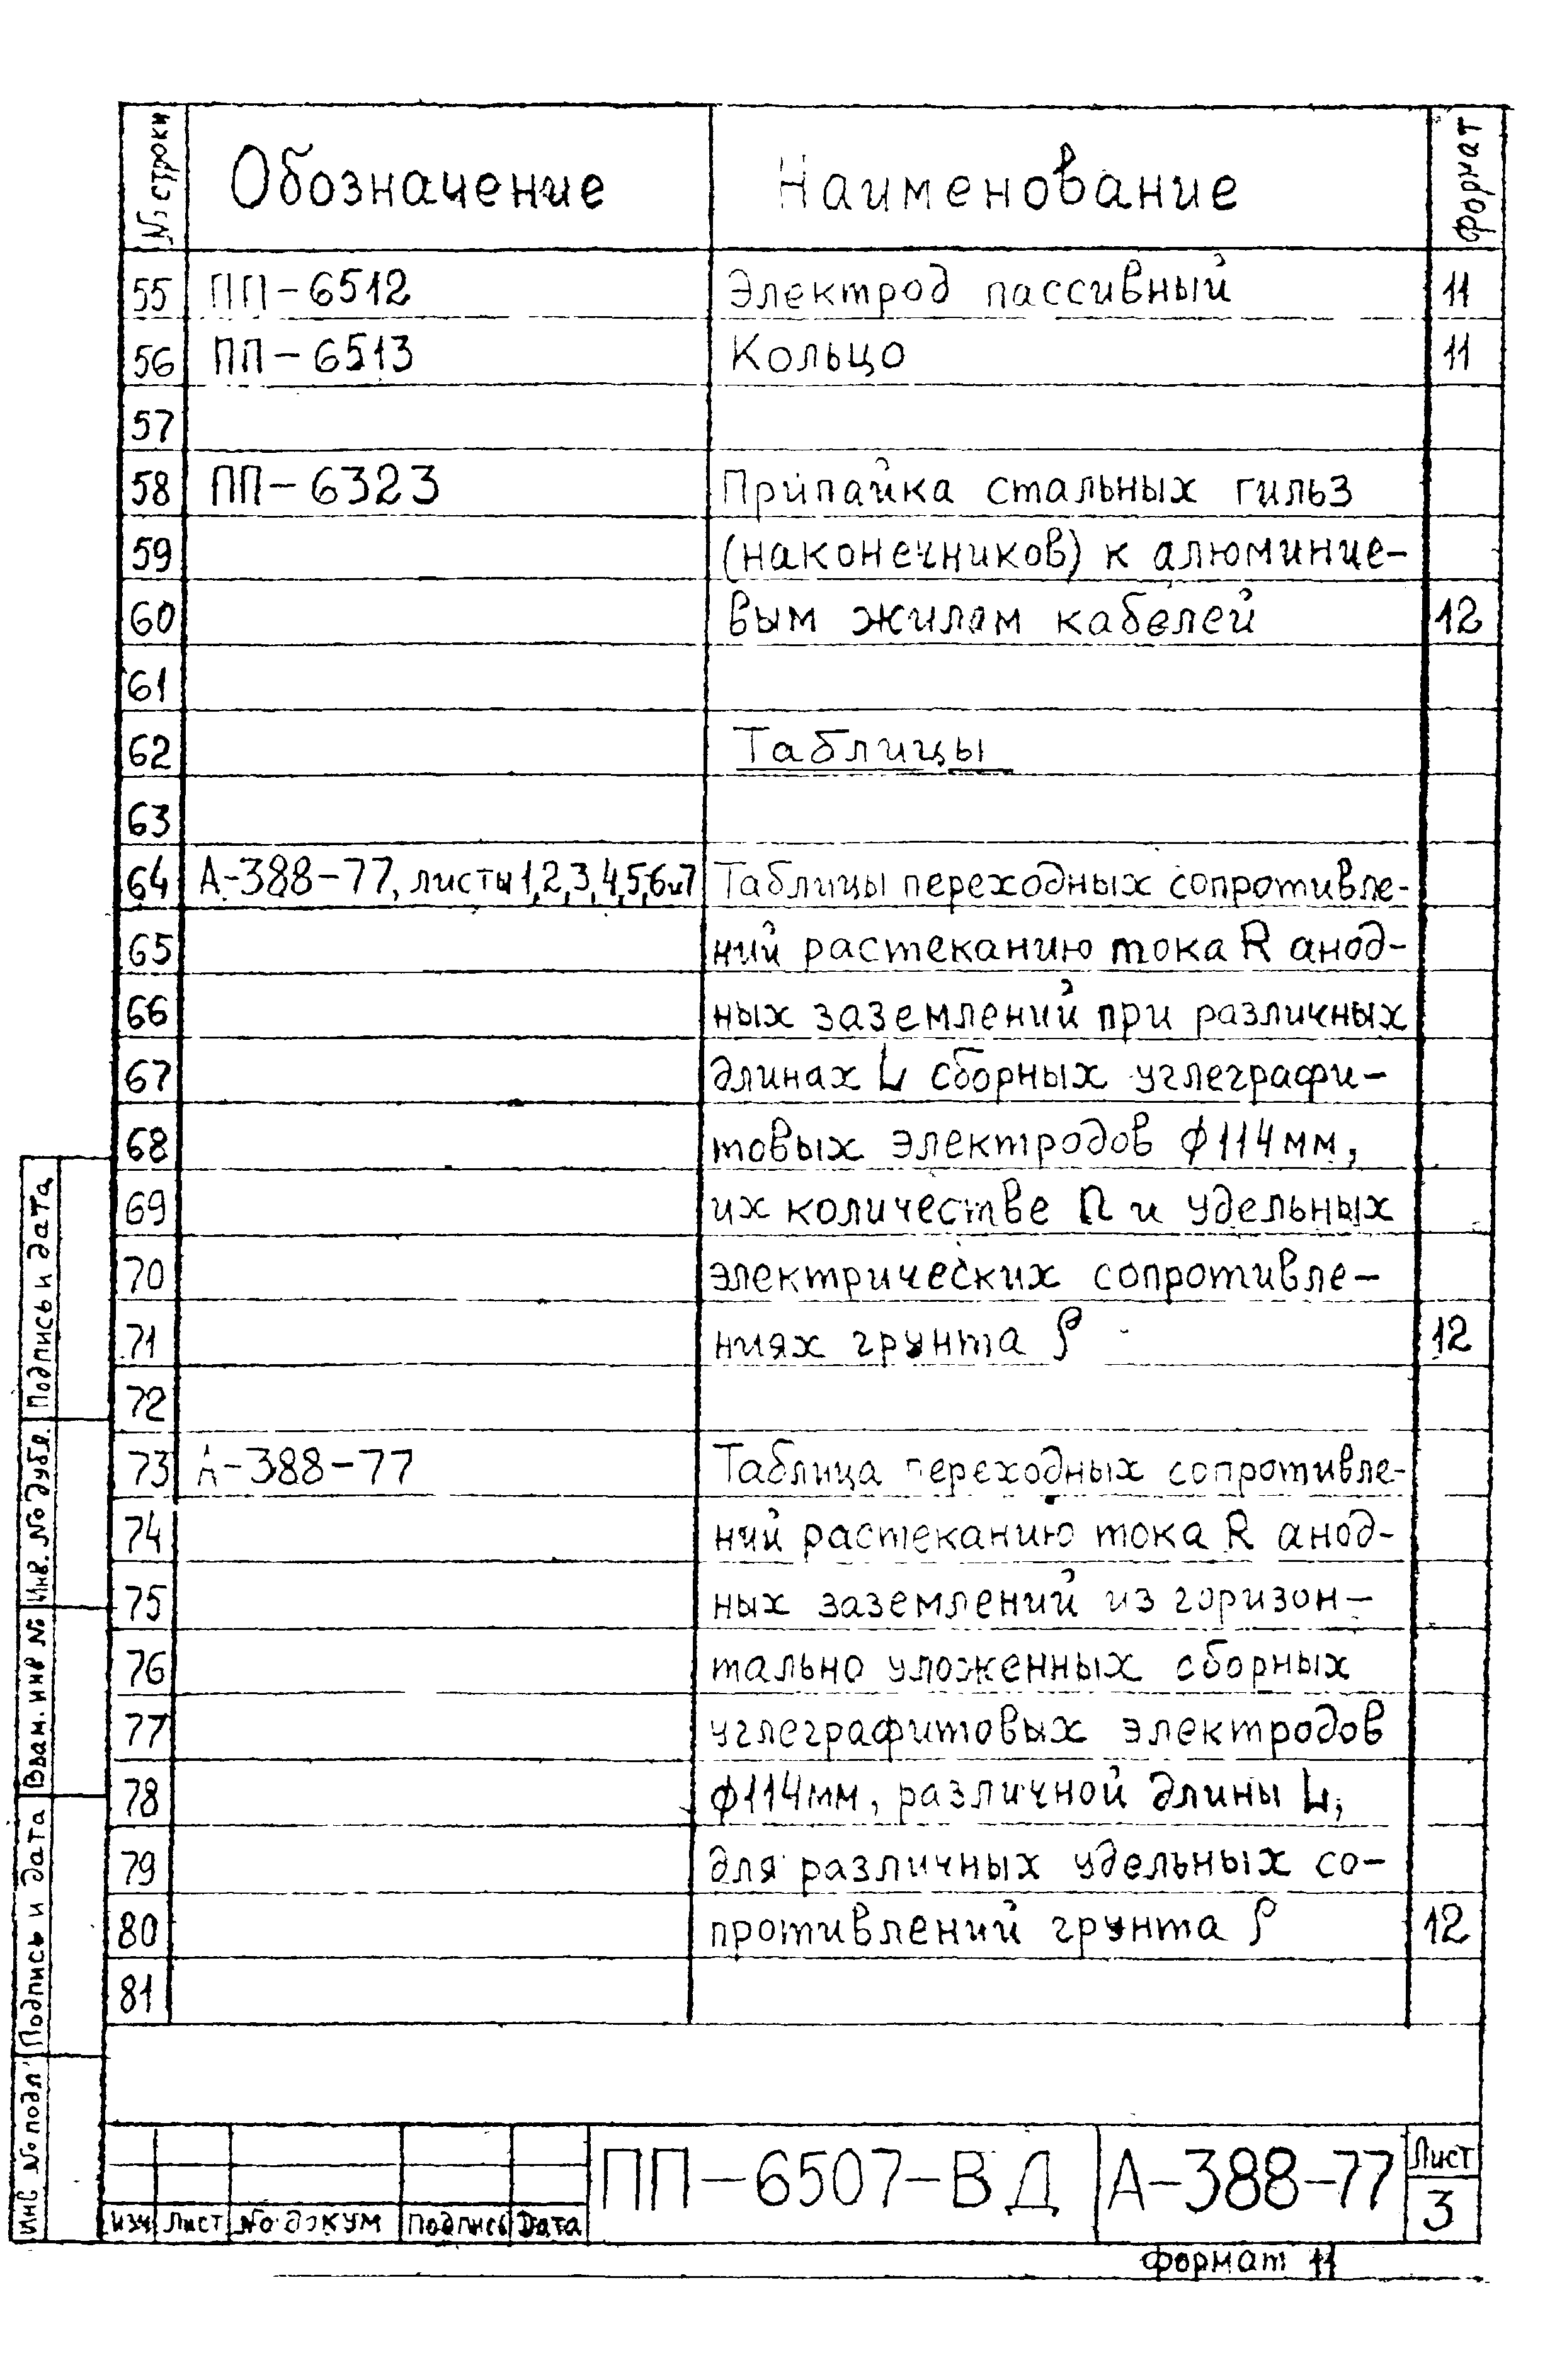 № строки Обозначение Наименование Формат
55 ПП-6512 Электрод пассивный 11
56 ПП-6513 Кольцо 11
57
58 ПП-6323 Припайка стальных гильз
59 (наконечников) к алюминие-
60 вым жилам кабелей 12
61
62 Таблицы
63
64 А-388-77, листы 1,2,3,4,5,6и7 Таблицы переходных сопротивле-
65 ний растеканию тока R анод-
66 ных заземлений при различных
67 длинах L сборных углеграфи-
68 товых электродов ф114мм,
69 их количестве n и удельных
70 электрических сопротивле-
71 ниях грунта ρ 12
72
73 А-388-77 Таблица переходных сопротивле-
74 ний растеканию тока R анод-
75 ных заземлений из горизон-
76 тально уложенных сборных
77 углеграфитовых электродов
78 ф114мм, различной длины L,
79 для различных удельных со-
80 противлений грунта ρ 12
81
Подпись и дата
Инв. № дубл.
Взам. инв №
Подпись и дата
Инв № подл
Изм Лист № докум Подпись Дата
ПП-6507-ВД А-388-77 Лист
3
Формат 11